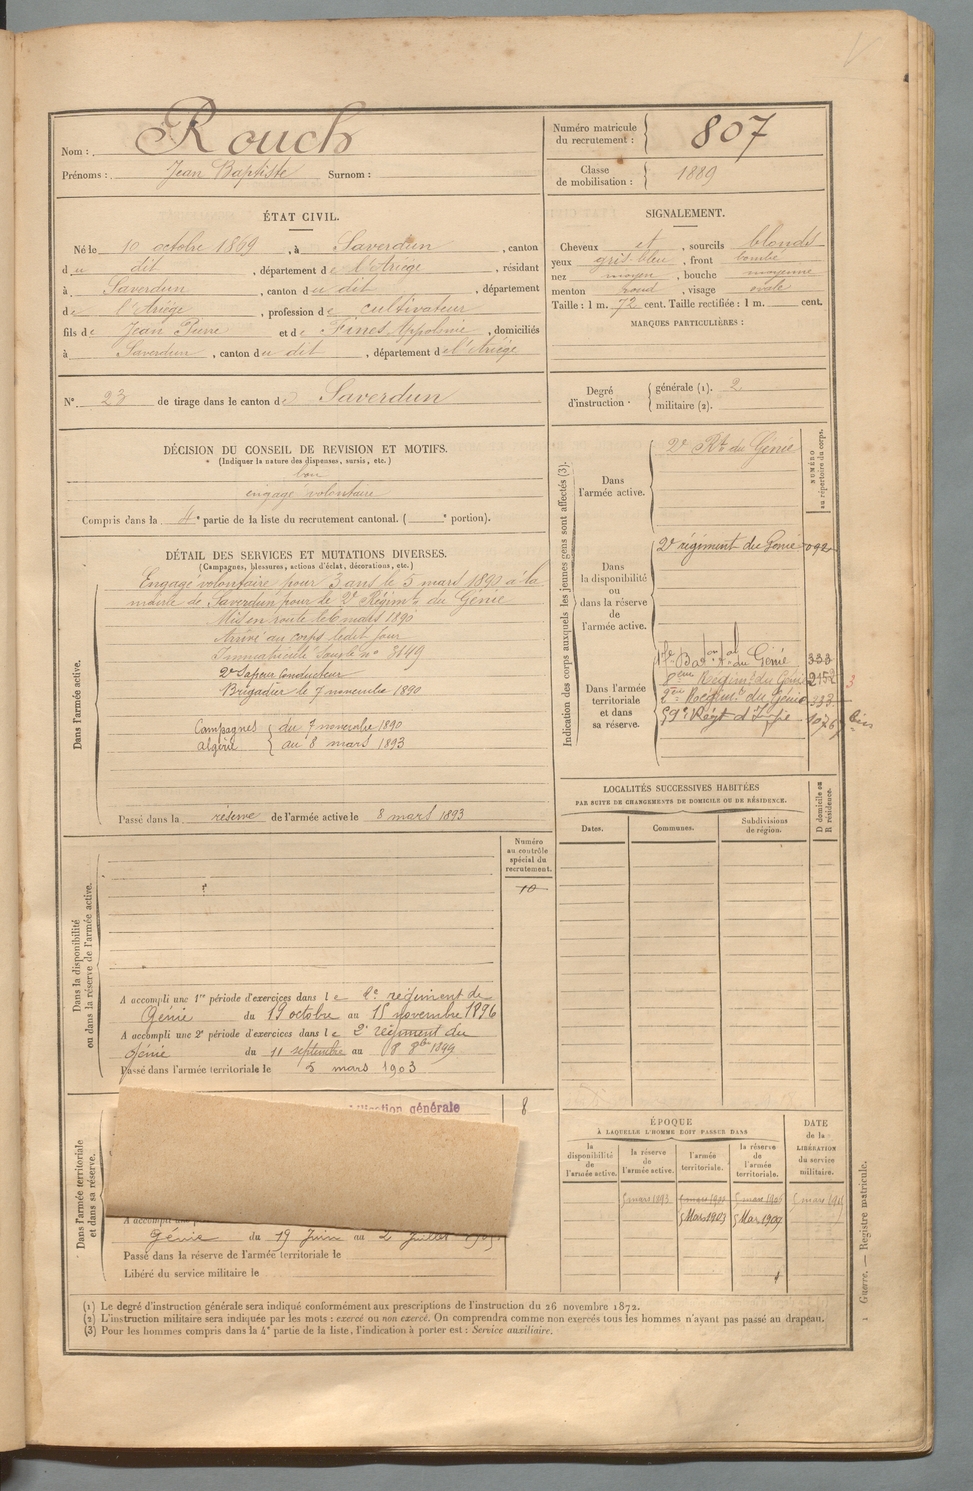 Nom : Rouch
Prénoms : Jean Baptiste Surnom :
Numéro matricule
du recrutement : 807
Classe
de mobilisation : 1889
ÉTAT CIVIL.
Né le 10 octobre 1869, à Saverdun, canton
du dit, département de l'Ariège, résidant
à Saverdun, canton du dit, département
de l'Ariège, profession de cultivateur
fils de Jean Pierre et de Fines Appolonie, domiciliés
à Saverdun, canton du dit, département de l'Ariège
N° 23 de tirage dans le canton de Saverdun
SIGNALEMENT.
Cheveux et, sourcils blonds
yeux gris-bleu, front bombé
nez moyen, bouche moyenne
menton rond, visage ovale
Taille : 1 m. 72 cent. Taille rectifiée : 1 m. cent.
MARQUES PARTICULIÈRES :
Degré
d'instruction.
générale (1). 2
militaire (2).
DÉCISION DU CONSEIL DE REVISION ET MOTIFS.
(Indiquer la nature des dispenses, sursis, etc.)
bon
engagé volontaire
Compris dans la 4e partie de la liste du recrutement cantonal. ( e portion).
DÉTAIL DES SERVICES ET MUTATIONS DIVERSES.
(Campagnes, blessures, actions d'éclat, décorations, etc.)
Dans l'armée active.
Engagé volontaire pour 3 ans le 5 mars 1890 à la
mairie de Saverdun pour le 2e Régimt du Génie
Mis en route le 6 mars 1890
Arrivé au corps ledit jour
Immatriculé sous le n° 8649
2e Sapeur conducteur
Brigadier le 7 novembre 1890
Campagnes du 7 novembre 1890
Algérie au 8 mars 1893
Passé dans la réserve de l'armée active le 8 mars 1893
Indication des corps auxquels les jeunes gens sont affectés (3).
NUMÉRO
au répertoire du corps.
Dans
l'armée active.
2e Rt du Génie
Dans
la disponibilité
ou
dans la réserve
de
l'armée active.
2e régiment du Génie 092
Dans l'armée
territoriale
et dans
sa réserve.
du Génie 333
Régimt du Génie 2152 3
2ème Régimt du Génie 333
59e Régt d'Ifie 1076 bis
LOCALITÉS SUCCESSIVES HABITÉES
PAR SUITE DE CHANGEMENTS DE DOMICILE OU DE RÉSIDENCE.
Dates.
Communes.
Subdivisions
de région.
D domicile ou
R résidence.
Dans la disponibilité
ou dans la réserve de l'armée active.
Numéro
au contrôle
spécial du
recrutement.
10
A accompli une 1re période d'exercices dans le 2e régiment de
Génie du 19 octobre au 15 novembre 1896
A accompli une 2e période d'exercices dans le 2e régiment du
Génie du 11 septembre au 08 8bre 1899
Passé dans l'armée territoriale le 5 mars 1903
Dans l'armée territoriale
et dans sa réserve.
générale
8
A accompli
Génie du 19 Juin au 2 Juillet
Passé dans la réserve de l'armée territoriale le
Libéré du service militaire le
ÉPOQUE
À LAQUELLE L'HOMME DOIT PASSER DANS
la
disponibilité
de
l'armée active.
la réserve
de
l'armée active.
l'armée
territoriale.
la réserve
de
l'armée
territoriale.
DATE
de la
LIBÉRATION
du service
militaire.
5 mars 1893
5 Mars 1903
5 Mars 1909
(1) Le degré d'instruction générale sera indiqué conformément aux prescriptions de l'instruction du 26 novembre 1872.
(2) L'instruction militaire sera indiquée par les mots : exercé ou non exercé. On comprendra comme non exercés tous les hommes n'ayant pas passé au drapeau.
(3) Pour les hommes compris dans la 4e partie de la liste, l'indication à porter est : Service auxiliaire.
1 Guerre. — Registre matricule.